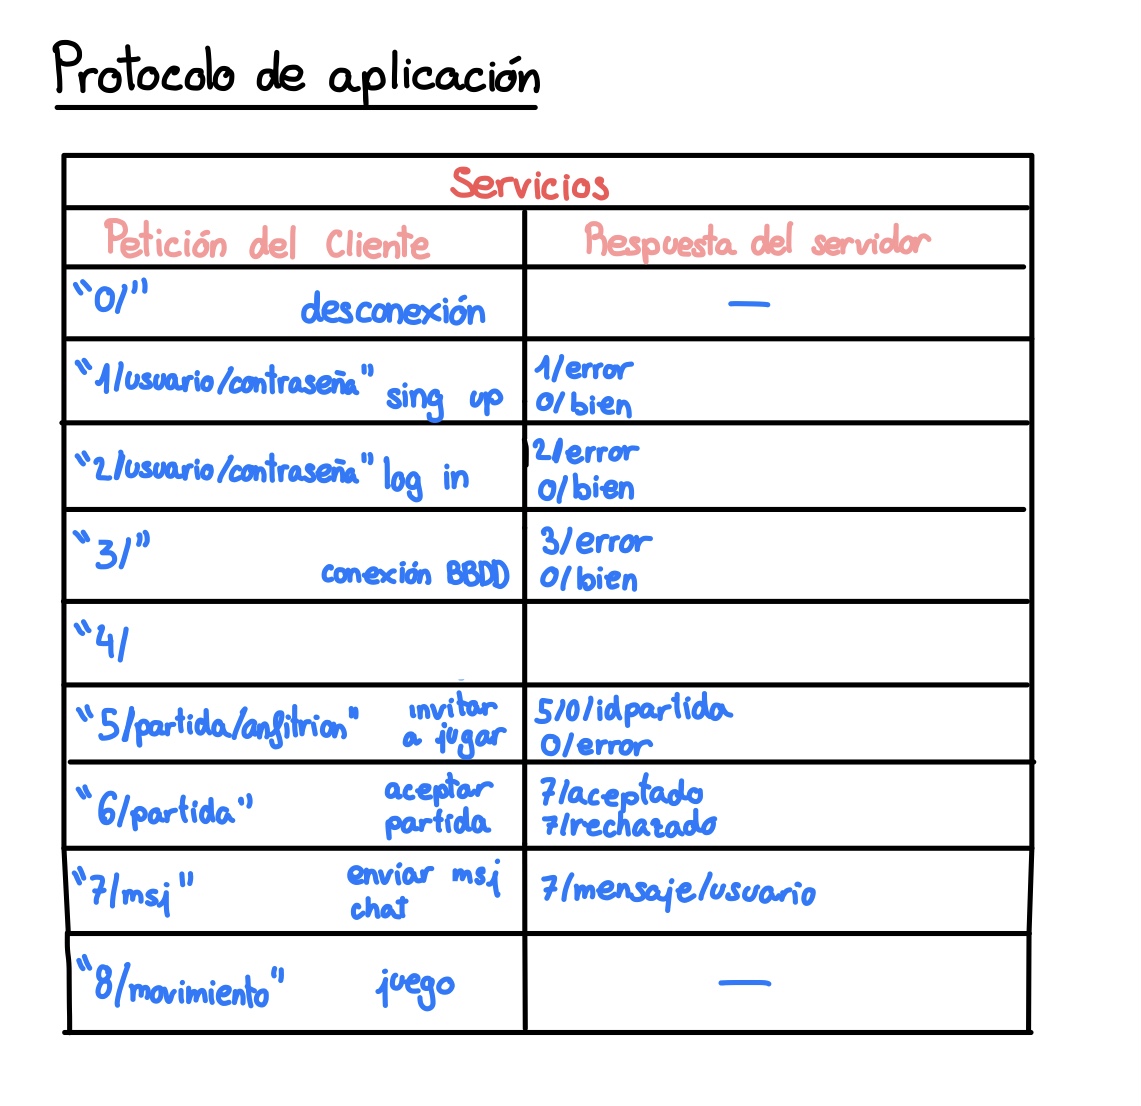 Protocolo de aplicación
Servicios
Petición del Cliente
Respuesta del servidor
"0/" desconexión
—
"1/usuario/contraseña" sing up
1/error
0/bien
"2/usuario/contraseña" log in
2/error
0/bien
"3/"
conexión BBDD
3/error
0/bien
"4/
"5/partida/anfitrion" invitar
a jugar
5/0/idpartida
0/error
"6/partida" aceptar
partida
7/aceptado
7/rechazado
"7/msj" enviar msj
chat
7/mensaje/usuario
"8/movimiento" juego
—